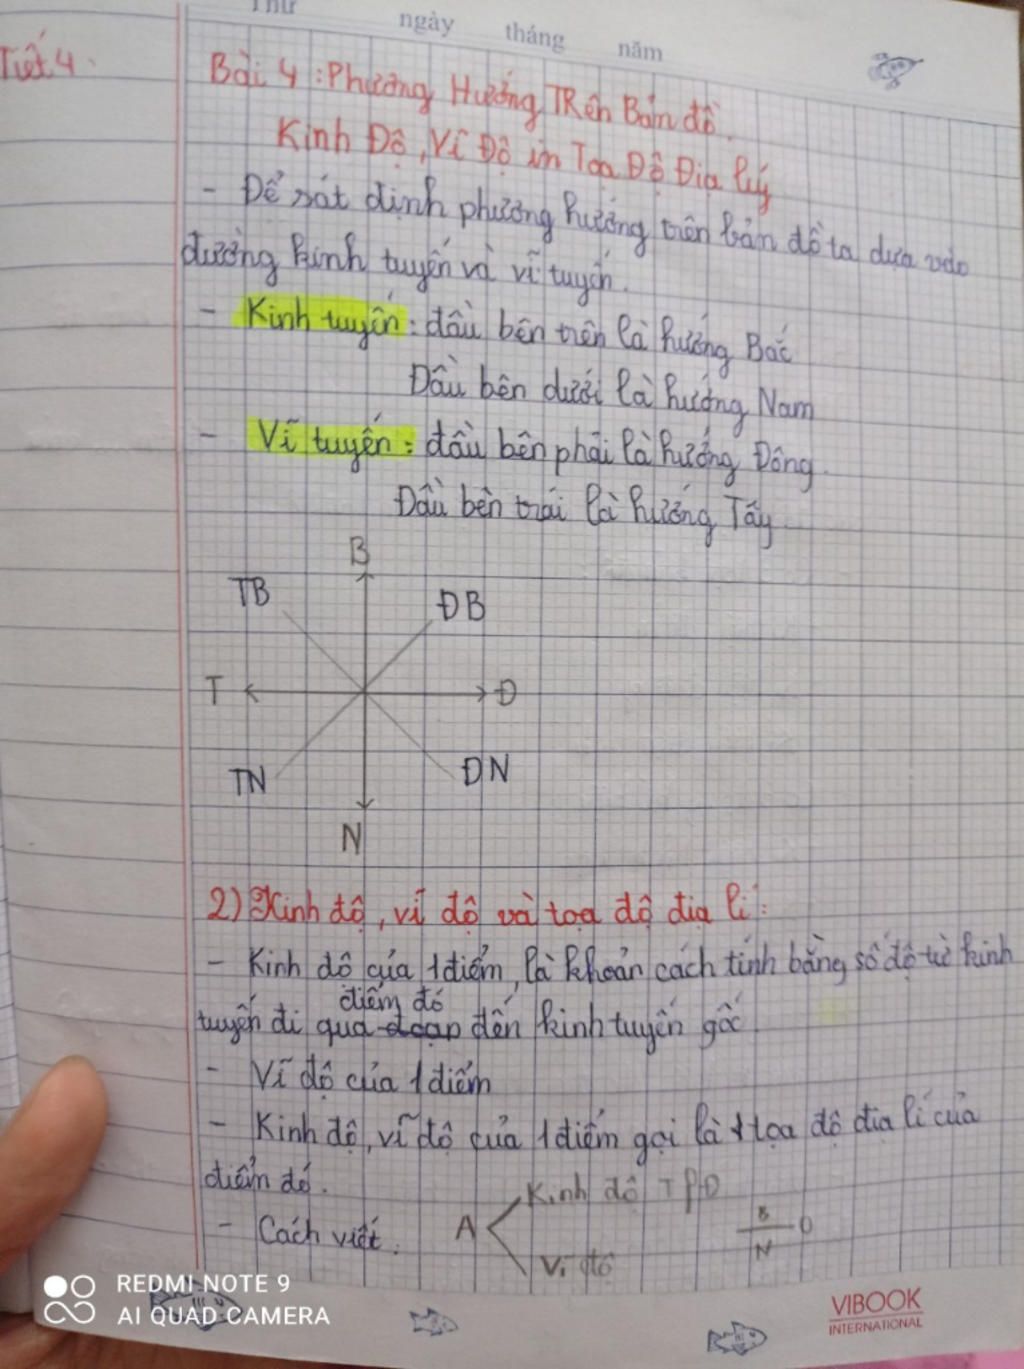 Thứ ngày tháng năm
Tiết 4.
Bài 4 : Phương Hướng TRên Bản đồ.
Kinh Độ, Vĩ Độ in Toạ Độ Địa lý
- Để xát định phương hướng trên bản đồ ta dựa vào
đường kinh tuyến và vĩ tuyến.
- Kinh tuyến : đầu bên trên là hướng Bắc
Đầu bên dưới là hướng Nam
- Vĩ tuyến : đầu bên phải là hướng Đông.
Đầu bên trái là hướng Tây
B
TB ĐB
T Đ
TN ĐN
N
2) Kinh độ, vĩ độ và toạ độ địa lí :
- Kinh độ của 1 điểm, là khoản cách tính bằng số độ từ kinh
điểm đó
tuyến đi qua đến kinh tuyến gốc
- Vĩ độ của 1 điểm
- Kinh độ, vĩ độ của 1 điểm gọi là toạ độ địa lí của
điểm đó.
Kinh độ T
- Cách viết. A
B
N 0
Vĩ độ
REDMI NOTE 9
AI QUAD CAMERA
VIBOOK
INTERNATIONAL